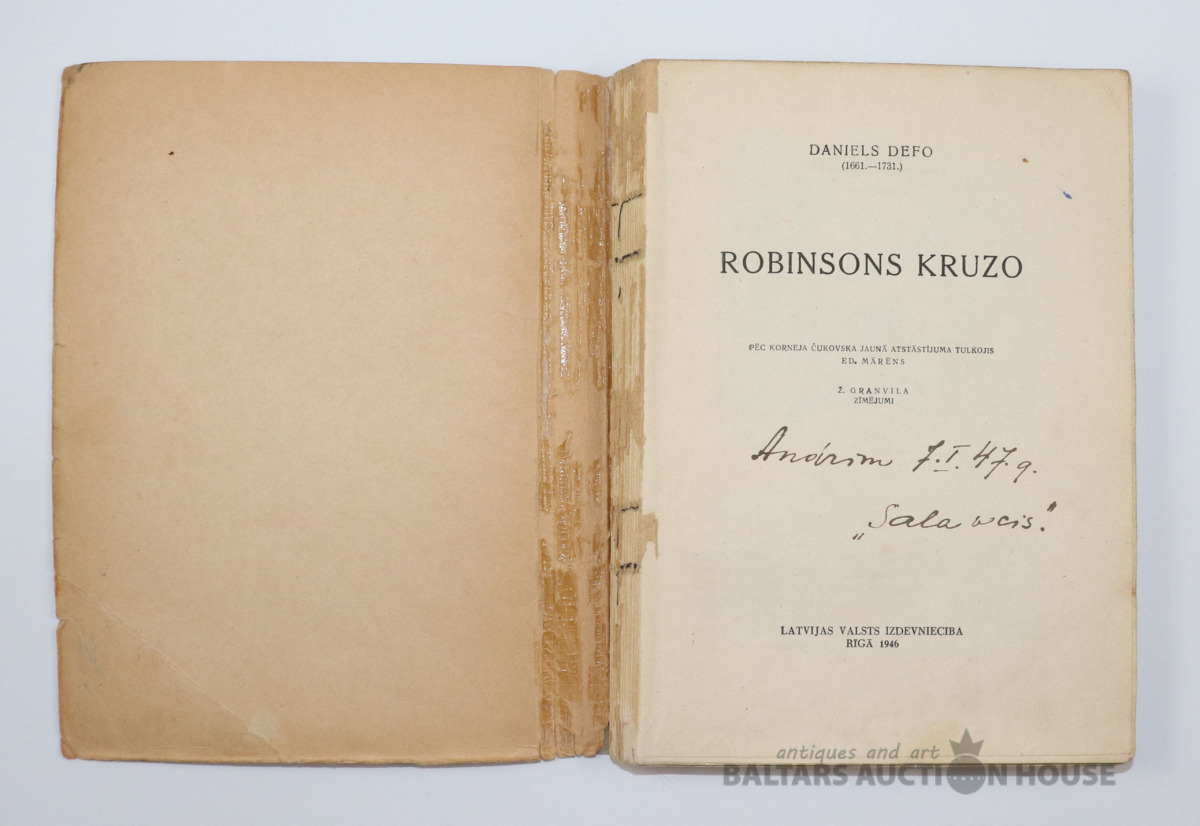 DANIELS DEFO
(1661.—1731.)
ROBINSONS KRUZO
PĒC KORNEJA ČUKOVSKA JAUNĀ ATSTĀSTĪJUMA TULKOJIS
ED. MĀRĒNS
Ž. GRANVILA
ZĪMĒJUMI
7.I.47.g.
„Sala
LATVIJAS VALSTS IZDEVNIECĪBA
RĪGĀ 1946
antiques and art
BALTARS AUCTION HOUSE